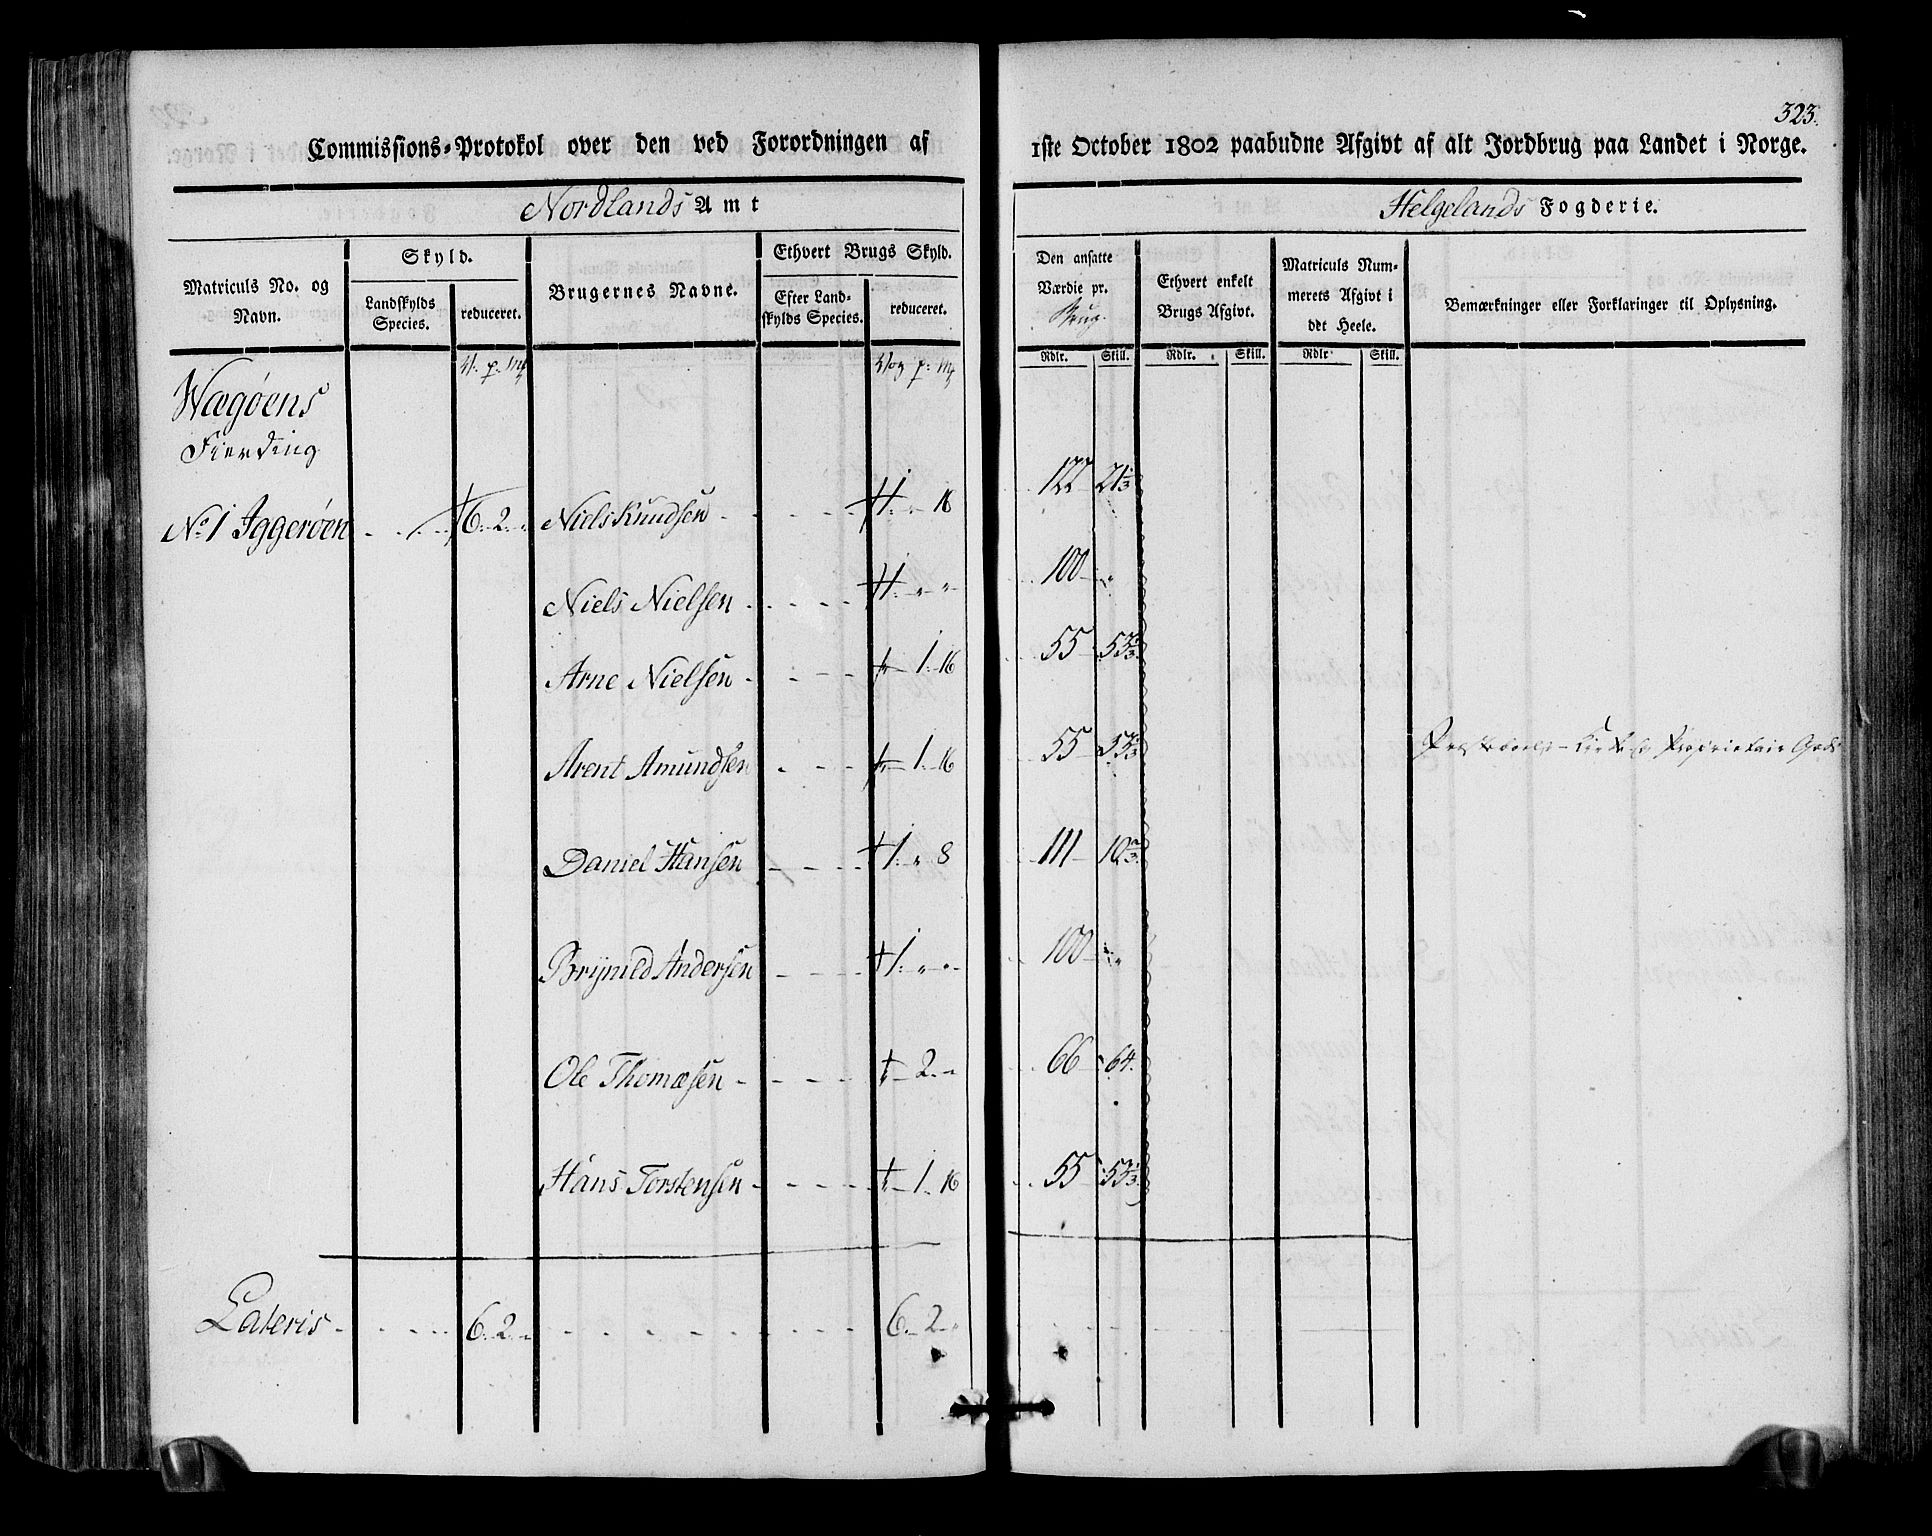 323.
Commissions-Protokol over den ved Forordningen af 1ste October 1802 paabudne Afgivt af alt Jordbrug paa Landet i Norge.
Nordlands Amt
Helgelands Fogderie.
Matriculs No. og Navn.
Skyld.
Landskylds Species.
reduceret.
Brugernes Navne.
Ethvert Brugs Skyld.
Efter Landskylds Species.
reduceret.
Den ansatte Værdie pr. Brug.
Ethvert enkelt Brugs Afgivt.
Matriculs Nummerets Afgivt i det Heele.
Bemærkninger eller Forklaringer til Oplysning.
V. p. M
Vog p. M
Rdlr. Skill. Rdlr. Skill. Rdlr Skill.
Wægøens
Fierding
No. 1 Iggerøen 6. 2. " Niels Knudsen 1. " 16 122 21 1/3
Niels Nielsen 1. " " 100 "
Arne Nielsen 1. 16 55 53 1/3
Arent Amundsen 1. 16 55 53 1/3
Præsteboels- Kirke og Proprietair Gods
Daniel Hansen 1. " 8 111 10 2/3
Brynild Andersen 1. " " 100 "
Ole Thomæsen 2. " 66 64.
Hans Torstensen 1. 16 55 53 1/3
Lateris 6. 2. " 6 2 "